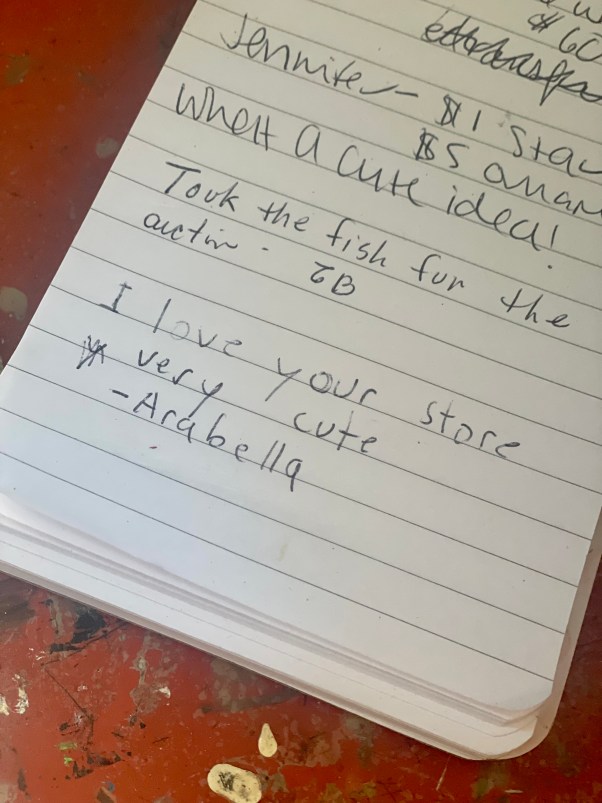 $60
Jennifer - $1 Stac
$5
What A cute idea!
Took the fish for the
auction - TB
I love your store
very cute
-Arabella